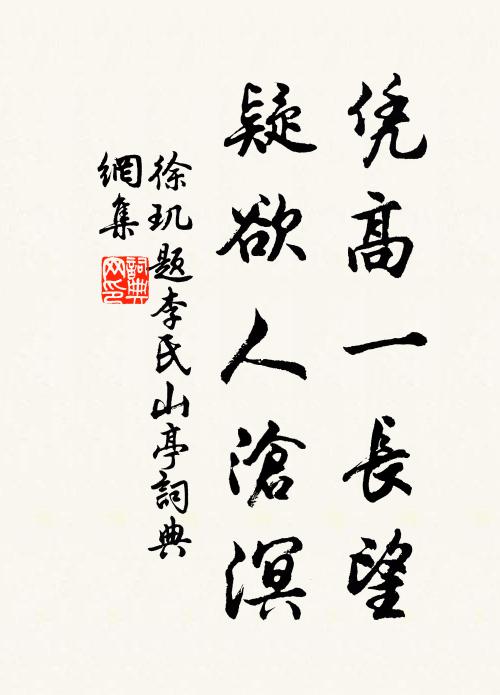 凭高一長望
疑欲人滄溟
徐玑题李氏山亭詞典
網集
詞典網印